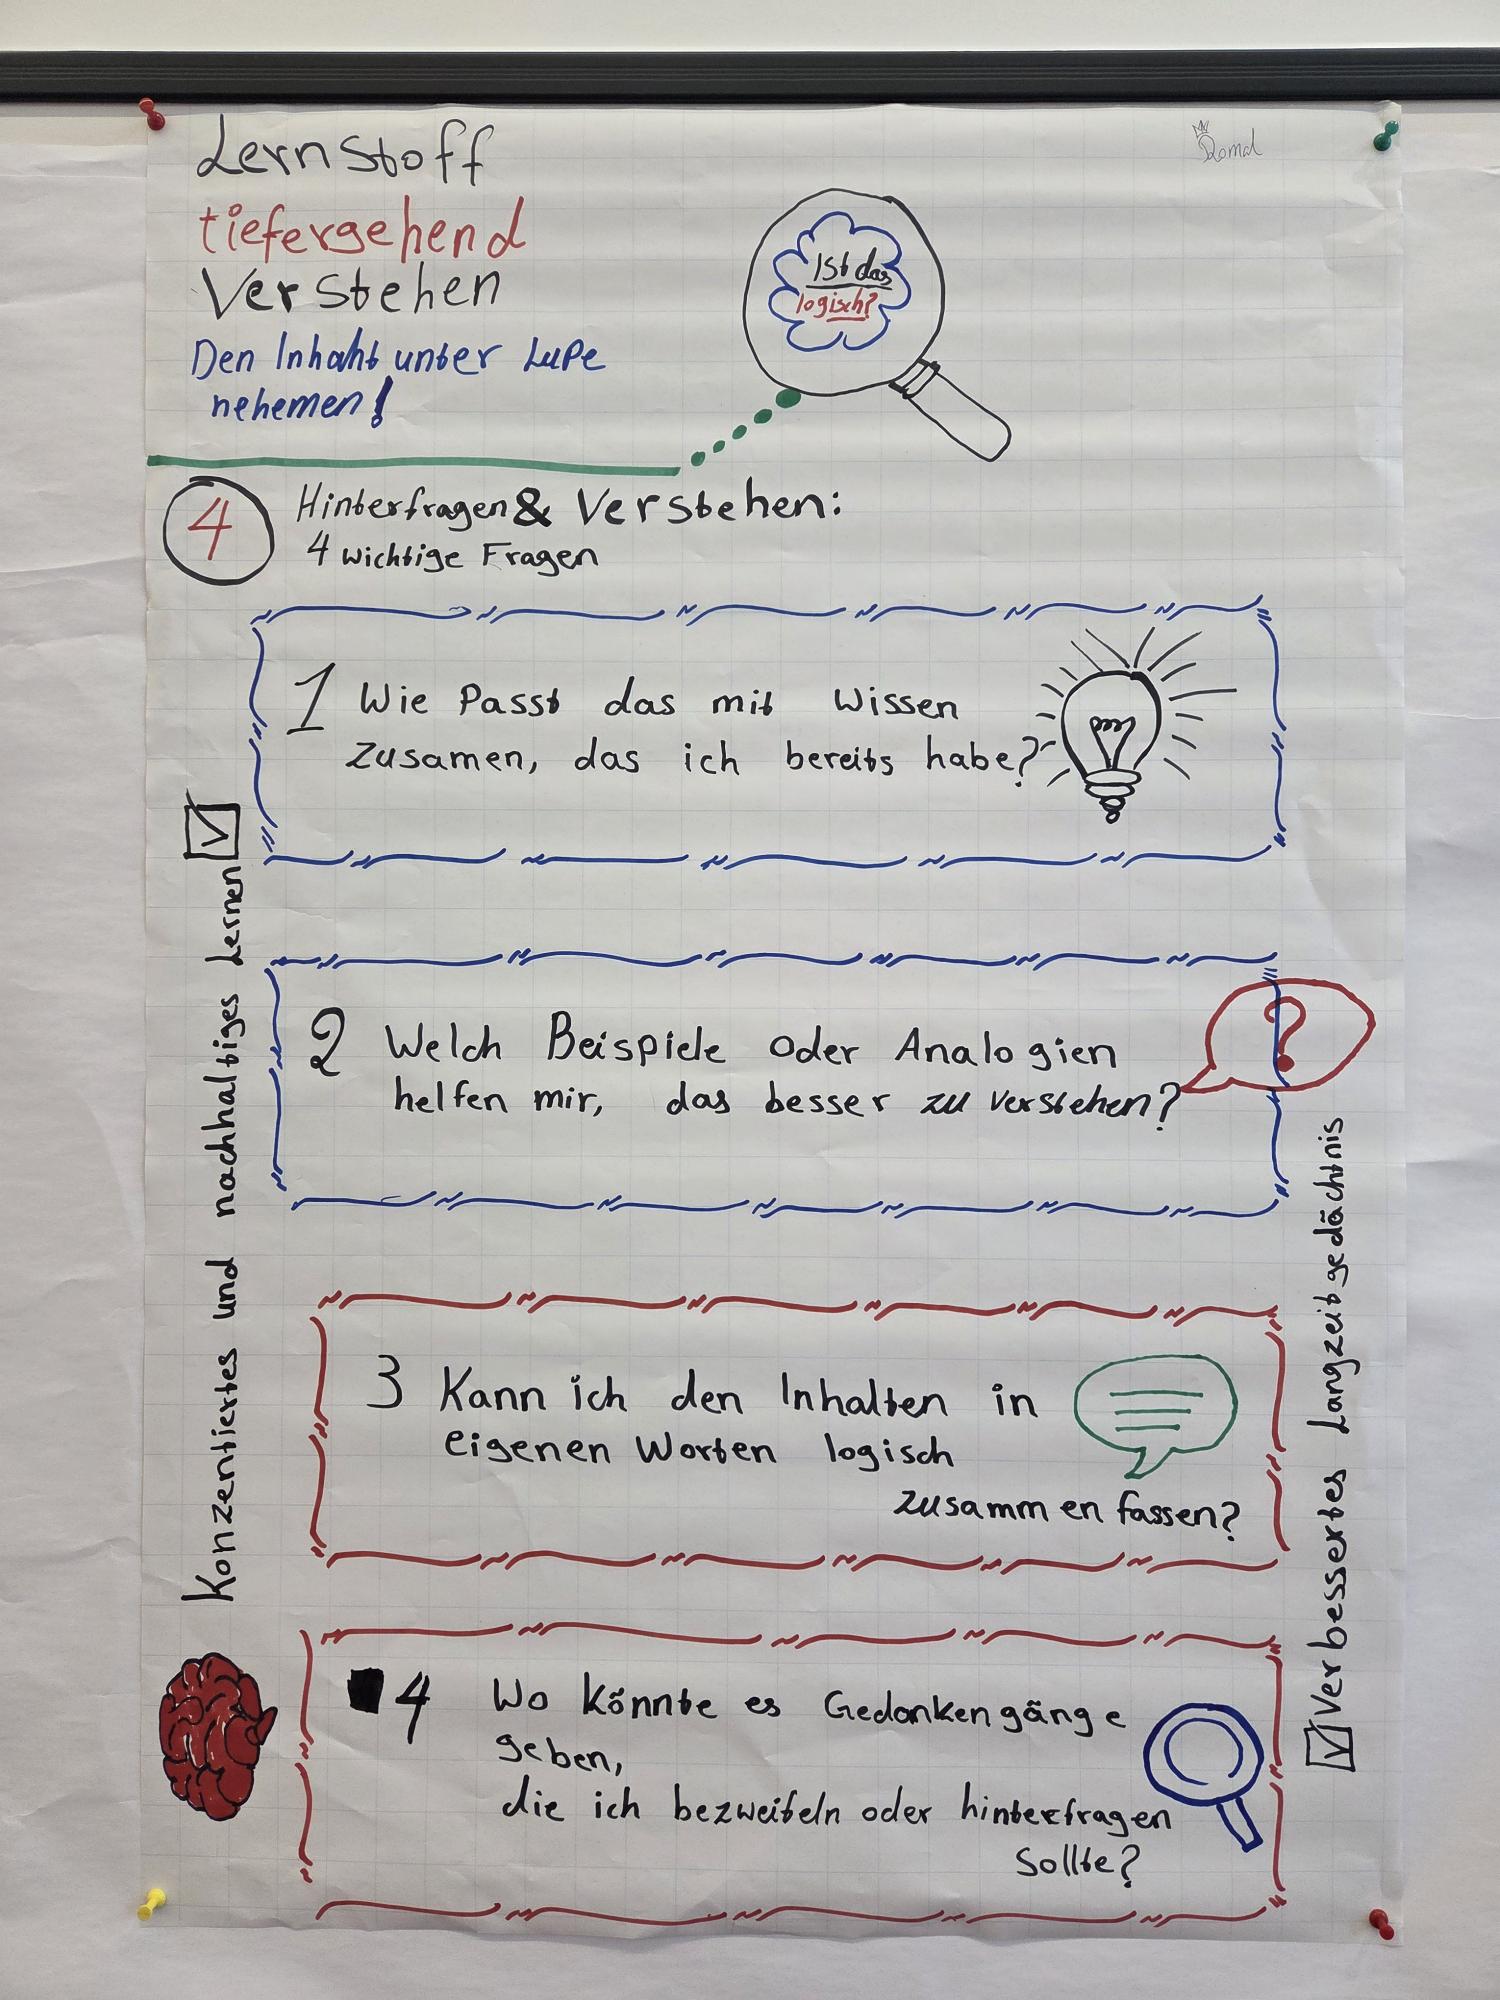 Lernstoff
tiefergehend
Verstehen
Den Inhaht unter Lupe
nehemen!
Romal
Ist das
logisch?
4
Hinterfragen & Verstehen:
4 wichtige Fragen
1 Wie Passt das mit Wissen
zusamen, das ich bereits habe?
2 Welch Beispiele oder Analogien
helfen mir, das besser zu verstehen?
?
3 Kann ich den Inhalten in
eigenen Worten logisch
zusammenfassen?
4 Wo könnte es Gedankengänge
geben,
die ich bezweifeln oder hinterfragen
Sollte?
Konzentiertes und nachhaltiges Lernen
Verbessertes Langzeitgedächtnis